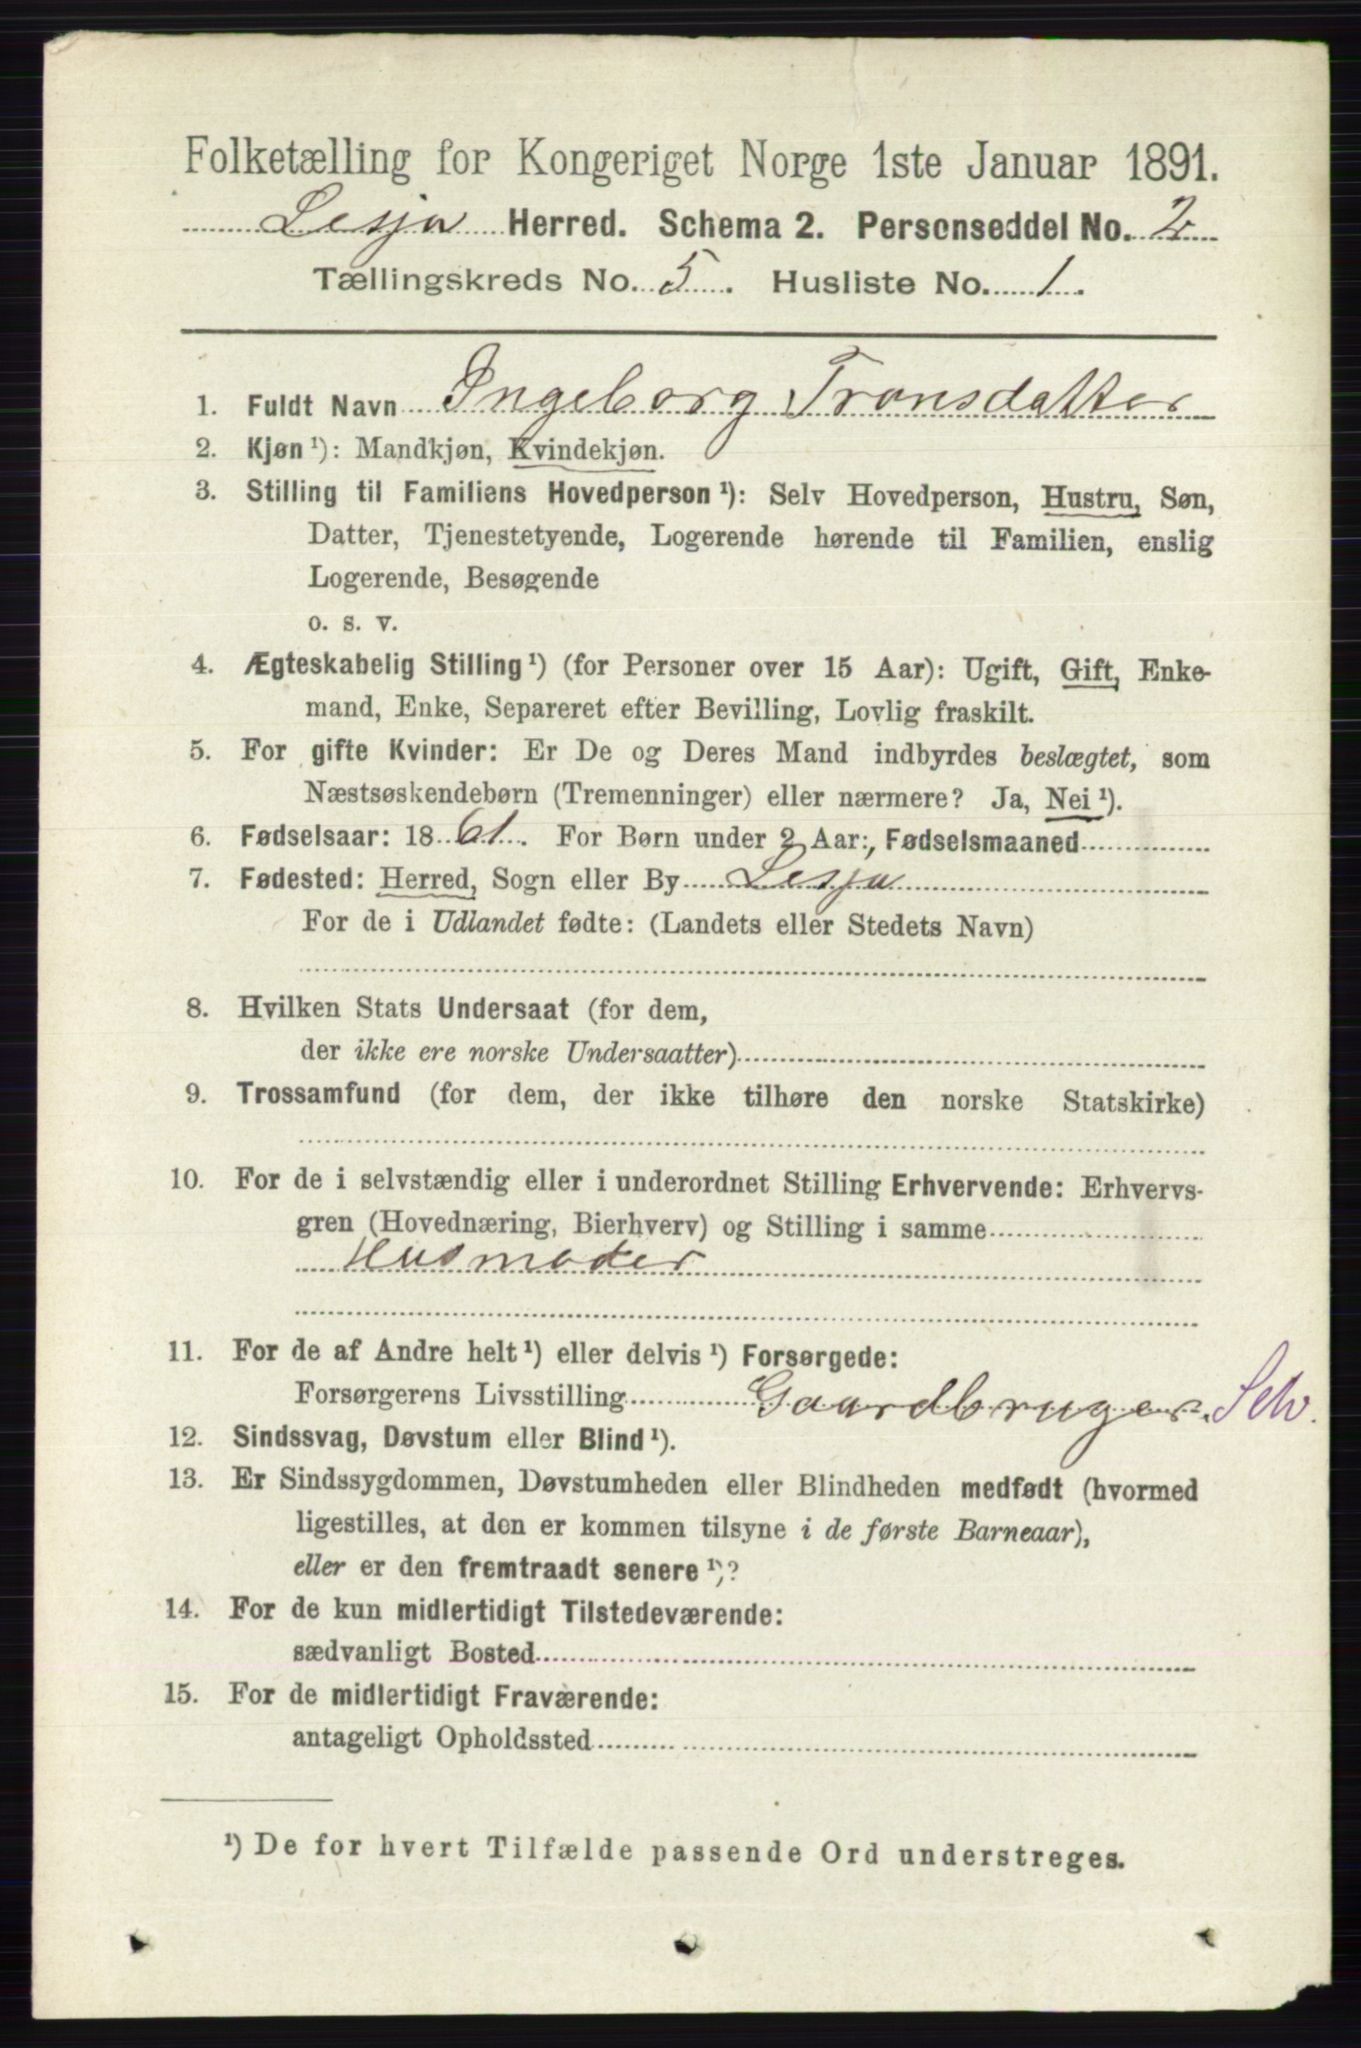 Folketælling for Kongeriget Norge 1ste Januar 1891.
Lesja Herred. Schema 2. Personseddel No. 2
Tællingskreds No. 5. Husliste No. 1.
1. Fuldt Navn Ingeborg Transdatter
2. Kjøn ¹): Mandkjøn, Kvindekjøn.
3. Stilling til Familiens Hovedperson ¹): Selv Hovedperson, Hustru, Søn,
Datter, Tjenestetyende, Logerende hørende til Familien, enslig
Logerende, Besøgende
o. s. v.
4. Ægteskabelig Stilling ¹) (for Personer over 15 Aar): Ugift, Gift, Enke-
mand, Enke, Separeret efter Bevilling, Lovlig fraskilt.
5. For gifte Kvinder: Er De og Deres Mand indbyrdes beslægtet, som
Næstsøskendebørn (Tremenninger) eller nærmere? Ja, Nei ¹).
6. Fødselsaar: 1861. For Børn under 2 Aar:, Fødselsmaaned
7. Fødested: Herred, Sogn eller By Lesja
For de i Udlandet fødte: (Landets eller Stedets Navn)
8. Hvilken Stats Undersaat (for dem,
der ikke ere norske Undersaatter)
9. Trossamfund (for dem, der ikke tilhøre den norske Statskirke)
10. For de i selvstændig eller i underordnet Stilling Erhvervende: Erhvervs-
gren (Hovednæring, Bierhverv) og Stilling i samme
Husmoder
11. For de af Andre helt ¹) eller delvis ¹) Forsørgede:
Forsørgerens Livsstilling Gaardbruger. Selv.
12. Sindssvag, Døvstum eller Blind ¹).
13. Er Sindssygdommen, Døvstumheden eller Blindheden medfødt (hvormed
ligestilles, at den er kommen tilsyne i de første Barneaar),
eller er den fremtraadt senere ¹)?
14. For de kun midlertidigt Tilstedeværende:
sædvanligt Bosted
15. For de midlertidigt Fraværende:
antageligt Opholdssted
¹) De for hvert Tilfælde passende Ord understreges.